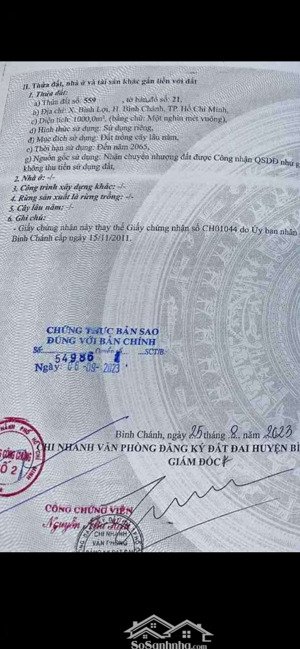 II. Thửa đất, nhà ở và tài sản khác gắn liền với đất
1. Thửa đất:
a) Thửa đất số: 559 , tờ bản đồ số: 21,
b) Địa chỉ: X. Bình Lợi, H. Bình Chánh, TP. Hồ Chí Minh,
c) Diện tích: 1000,0m², (bằng chữ: Một nghìn mét vuông),
d) Hình thức sử dụng: Sử dụng riêng,
đ) Mục đích sử dụng: Đất trồng cây lâu năm,
e) Thời hạn sử dụng: Đến năm 2065,
g) Nguồn gốc sử dụng: Nhận chuyển nhượng đất được Công nhận QSDĐ như g
không thu tiền sử dụng đất,
2. Nhà ở: -/-
3. Công trình xây dựng khác: -/-
4. Rừng sản xuất là rừng trồng: -/-
5. Cây lâu năm: -/-
6. Ghi chú:
- Giấy chứng nhận này thay thế Giấy chứng nhận số CH01044 do Ủy ban nhân
Bình Chánh cấp ngày 15/11/2011.
CHỨNG THỰC BẢN SAO
ĐÚNG VỚI BẢN CHÍNH
Số: 54986 Quyển số: SCT/B
Ngày: 06-09-2023
Bình Chánh, ngày 25 tháng 8 năm 2023
HI NHÁNH VĂN PHÒNG ĐĂNG KÝ ĐẤT ĐAI HUYỆN BÌ
GIÁM ĐỐC
CÔNG CHỨNG VIÊN
CHI NHÁNH
VĂN PHÒNG
SoSanhnha.com